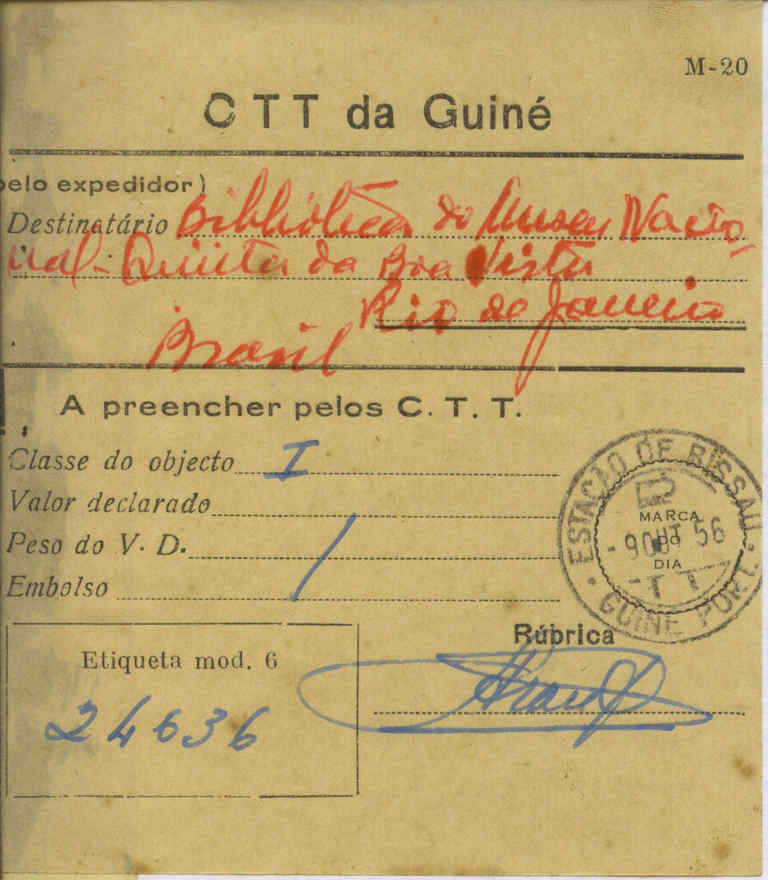 M-20
CTT da Guiné
pelo expedidor)
Destinatário Bibliotéca do Museu Nacio-
nal - Quinta da Boa Vista
Rio de Janeiro
Brasil
A preencher pelos C. T. T.
Classe do objecto I
Valor declarado
Peso do V. D.
Embolso
ESTAÇÃO DE BISSAU
MARCA
DO
DIA
- 9 OUT 56
GUINÉ PORT.
Rúbrica
Etiqueta mod. 6
24636